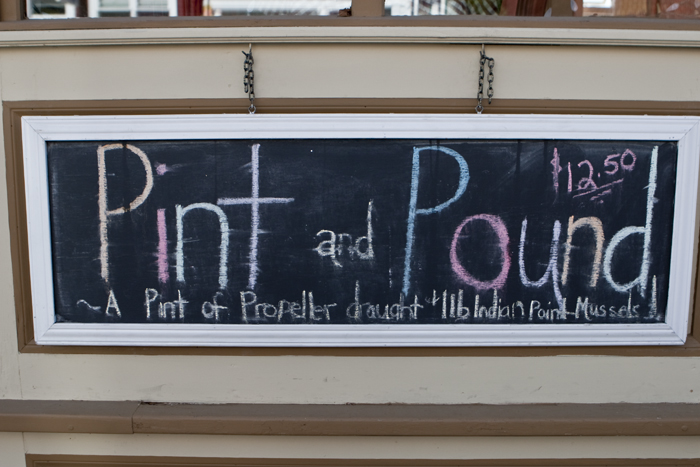 Pint and Pound
$12.50
~A Pint of Propeller draught + 1lb Indian Point Mussels~